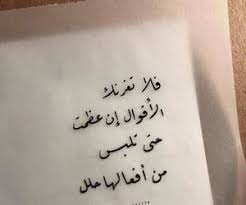 فلا تغرنك
الأقوال إن عظمت
حتى تلبس
من أفعالها حلل
......